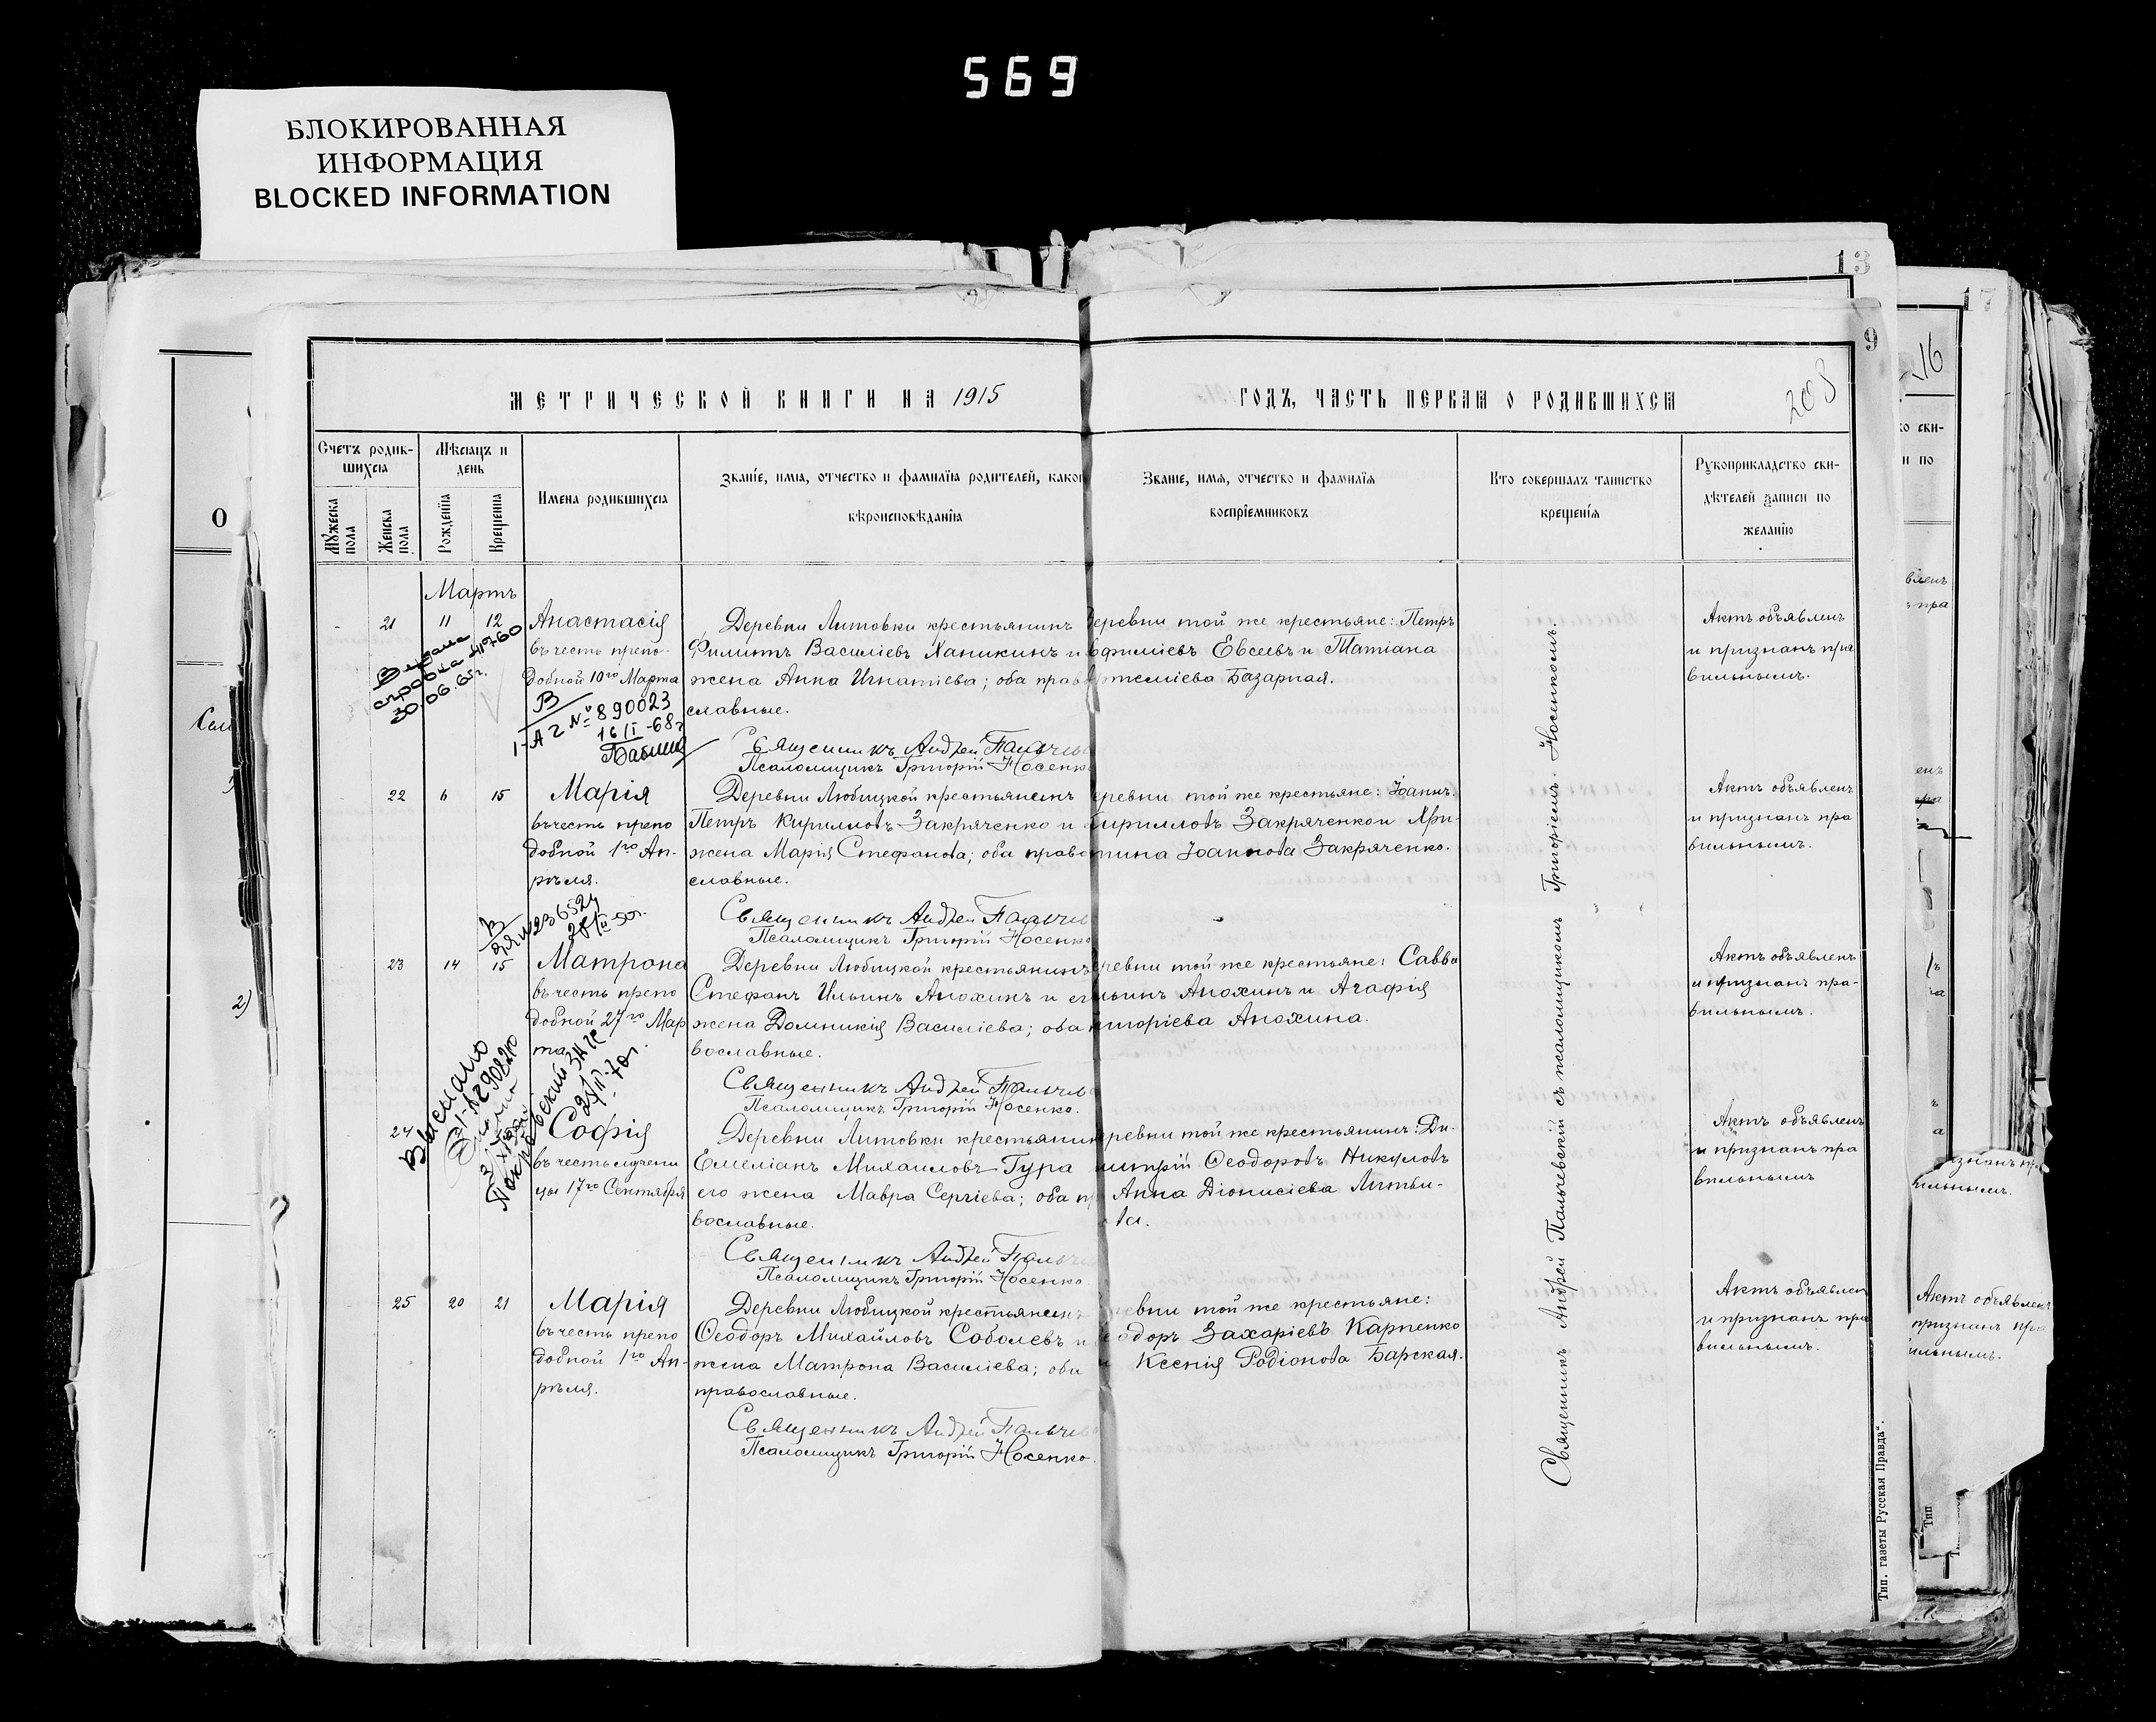 569
БЛОКИРОВАННАЯ
ИНФОРМАЦИЯ
BLOCKED INFORMATION
13
17
9
16
208
МЕТРИЧЕСКОЙ КНИГИ НА 1915
ГОДЪ, ЧАСТЬ ПЕРВАЯ О РОДИВШИХСЯ
Счетъ родив-
шихся
Мужеска
пола
Женска
пола
Мѣсяцъ и
день
Рожденія
Крещенія
Имена родившихся
Званіе, имя, отчество и фамилія родителей, како
вѣроисповѣданія
Званіе, имя, отчество и фамилія
воспріемниковъ
Кто совершалъ таинство
крещенія
Рукоприкладство сви-
дѣтелей записи по
желанію
Мартъ
21 11 12
Анастасія
въ честь препо-
добной 10го Марта
Выдана
справка 41760
30.06.65г.
В
1-А2 № 890023
16/I-68г
Деревни Литовки крестьянинъ
Филиппъ Василіевъ Ханикинъ и
жена Анна Игнатіева; оба прав
славные.
Священникъ Андрей Пальчев
Псаломщикъ Григорій Носенко
деревни той же крестьяне: Петръ
Евсеевъ и Татіана
Базарная.
Актъ объявленъ
и признанъ пра
вильнымъ.
22 11 15
Марія
въ честь препо
добной 1го Ап-
рѣля.
Деревни Любицкой крестьянинъ
Петръ Кирилловъ Закряченко и
жена Марія Стефанова; оба право
славные.
Священникъ Андрей Пальчев
Псаломщикъ Григорій Носенко
еревни той же крестьяне: Іоаннъ
Кирилловъ Закряченко и Хри-
тина Іоаннова Закряченко.
Актъ объявленъ
и признанъ пра
вильнымъ.
23 14 15
Матрона
въ честь препо
добной 27го Мар
та.
Деревни Любицкой крестьянинъ
Стефанъ Ильинъ Анохинъ и ег
жена Домникія Василіева; оба
вославные.
Священникъ Андрей Пальчев
Псаломщикъ Григорій Носенко.
ревни той же крестьяне: Савва
Ильинъ Анохинъ и Агафія
игоріева Анохина.
Актъ объявленъ
и признанъ пра-
вильнымъ.
24
Выслано
Софія
въ честь мучени
цы 17го Сентября
Деревни Литовки крестьянин
Емеліанъ Михаиловъ Гура
его жена Мавра Сергіева; оба пр
вославные.
Священникъ Андрей Пальчев
Псаломщикъ Григорій Носенко
ревни той же крестьянинъ: Ди-
митрій Ѳеодоровъ Никуловъ
Анна Діонисіева Литви-
ва.
Актъ объявленъ
и признанъ пра
вильнымъ
25 20 21
Марія
въ честь препо
добной 1го Ап-
рѣля.
Деревни Любицкой крестьянинъ
Ѳеодоръ Михайловъ Соболевъ и
жена Матрона Василіева; оба
православные.
Священникъ Андрей Пальчев
Псаломщикъ Григорій Носенко.
евни той же крестьяне:
одоръ Захаріевъ Карпенко
и Ксенія Родіонова Барская.
Актъ объявлен
и признанъ пра
вильнымъ.
Священникъ Андрей Пальчевскій съ псаломщикомъ Григоріемъ Носенкомъ.
Тип. газеты Русская Правда".
Актъ объявленъ
признанъ пра
ильнымъ.